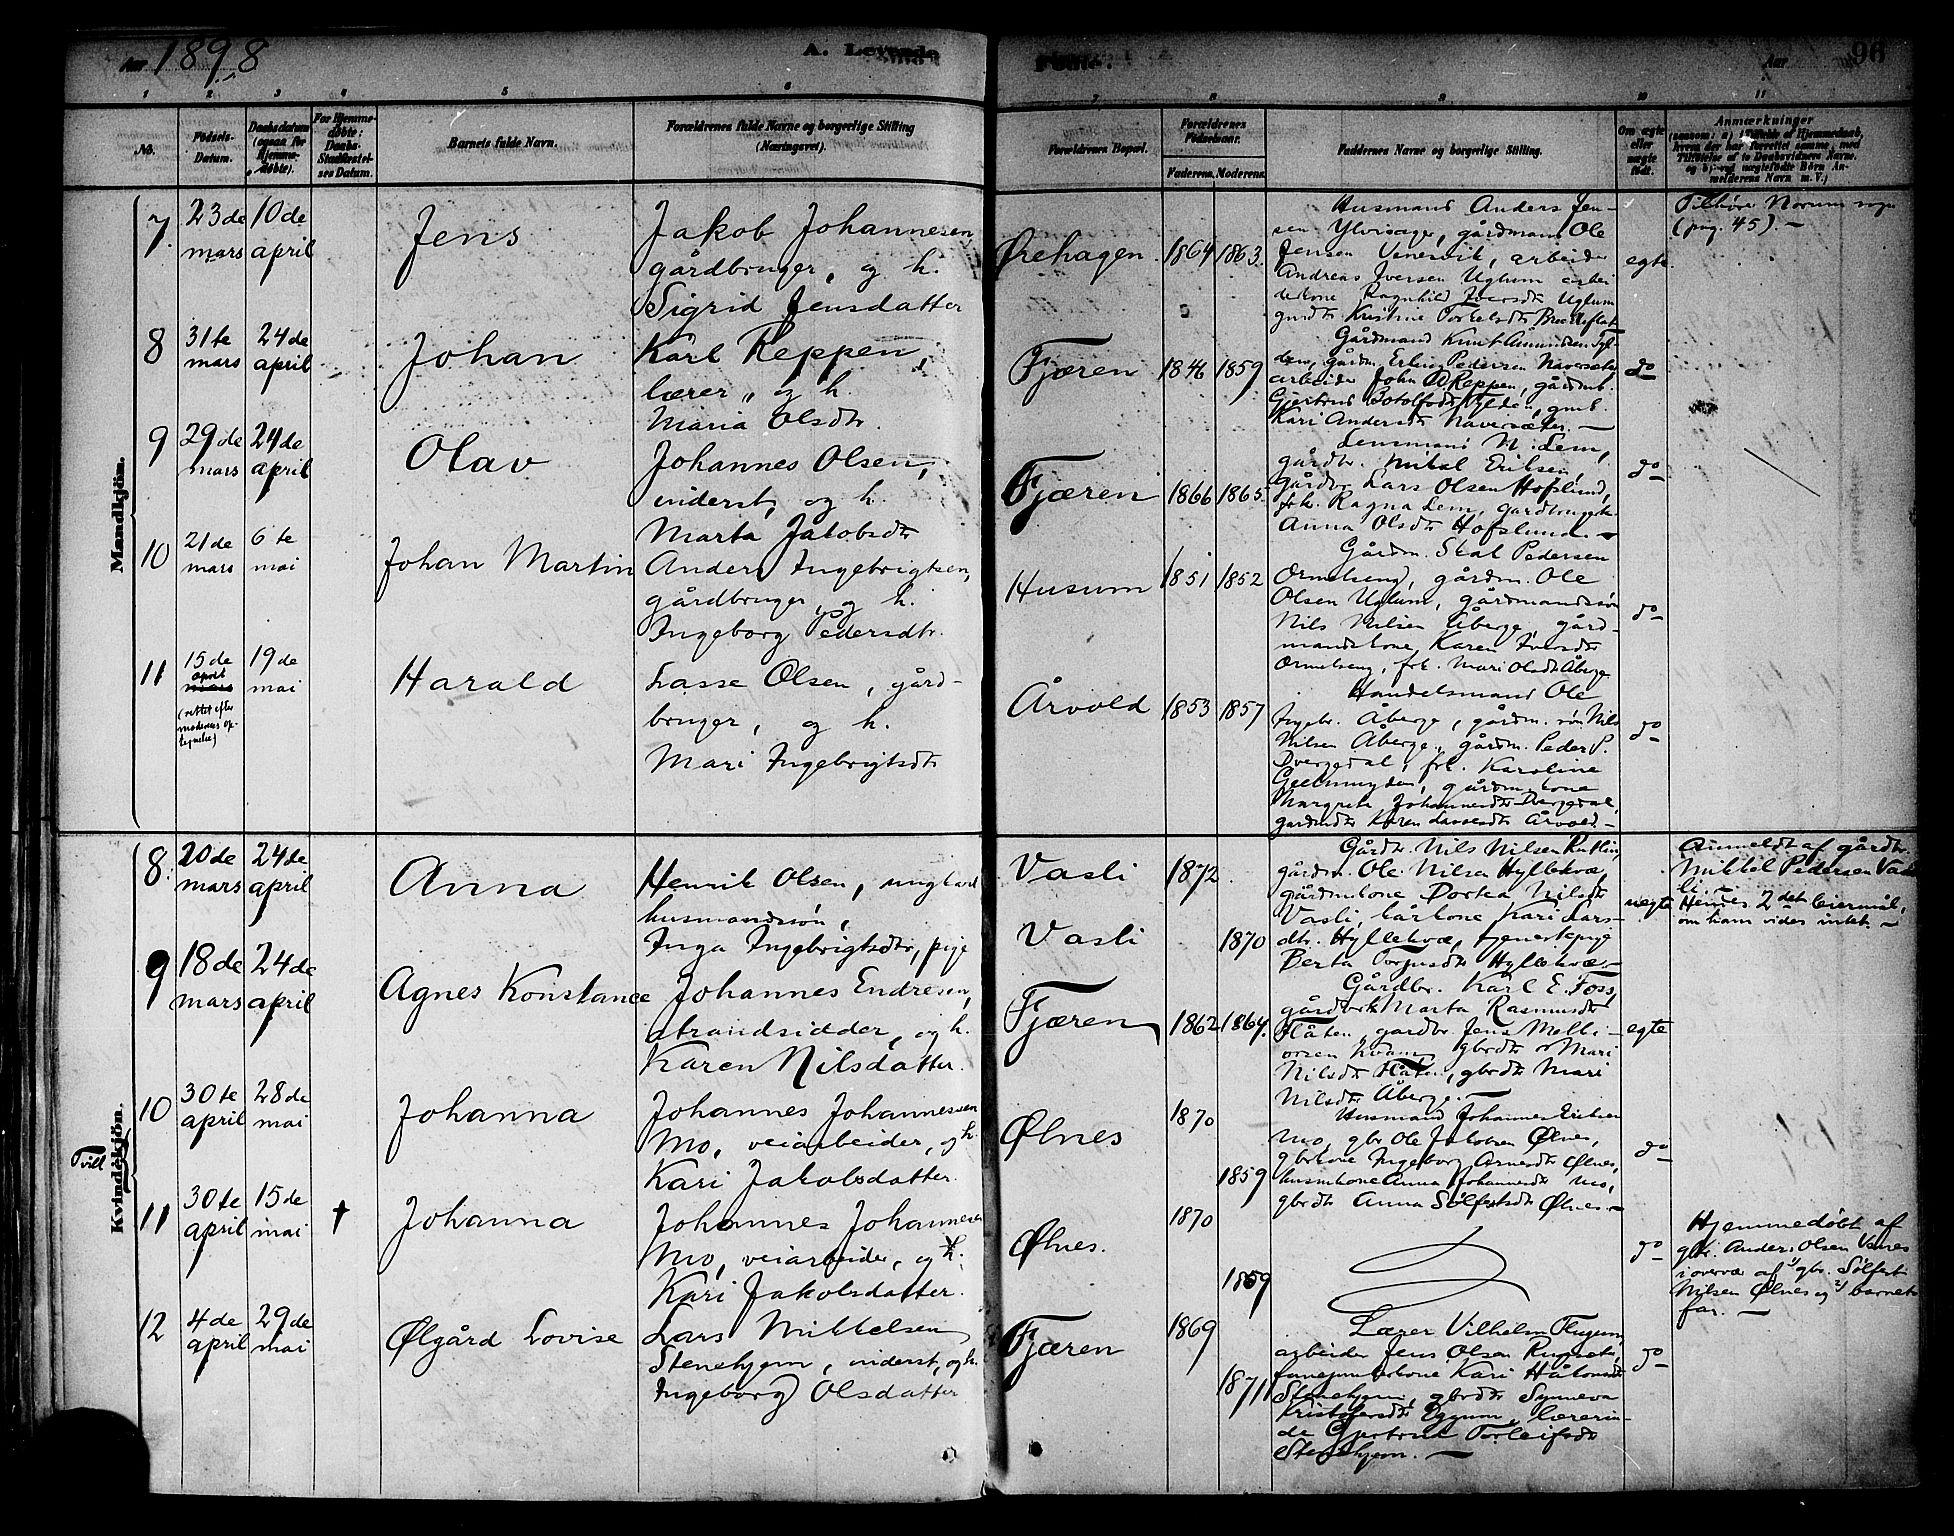 Aar 1898
A. Levende
Fødte.
Aar
96
1 2 3 4 5 6
7 8 9 10 11
No.
Fødsels-
Datum.
Daabsdatum
(ogsaa for
Hjemme-
døbte).
For Hjemme-
døbte:
Daabs-
Stadfæstel-
ses Datum.
Barnets fulde Navn.
Forældrenes fulde Navne og borgerlige Stilling
(Næringsvei).
Forældrenes Bopæl.
Forældrenes
Fødselsaar.
Faderens. Moderens.
Faddernes Navne og borgerlige Stilling.
Om ægte
eller
uægte
født.
Anmærkninger
Mandkjön.
7.
23de
mars
10de
april
Jens
Jakob Johannesen,
gårdbruger, og h.
Sigrid Jensdatter
Ørehagen.
1864
1863.
Husmand Anders Jen-
sen Ylvisager, gårdmand Ole
Jensen Venesvik, arbeider
Andreas Iversen Uglum arbei
derkone Ragnhild Iversdtr Uglum
gmdtr Kristine Torkelsdtr
egte.
Tilhører Norum sogn
(pag. 45). —
8
31te
mars
24de
april
Johan
Karl Reppen,
lærer, og h.
Maria Olsdtr.
Fjæren
1846
1859
Gårdmand Knut Amundsen
gårdm. Erling Pedersen Naversete,
arbeider John Reppen, gårdmk.
Gjertrud Botolfsdtr
Kari Andersdtr Naversæter. —
do
9
29de
mars
24de
april
Olav
Johannes Olsen,
inderst, og h.
Marta Jakobsdtr
Fjæren
1866
1865.
Lensmand N. Lem,
gårdbr. Mikal Eriksen,
gårdbr Lars Olsen Hofslund,
frk. Ragna Lem, gårdbrugsk.
Anna Olsdtr Hofslund. —
do
10
21de
mars
6te
mai
Johan Martin
Anders Ingebrigtsen,
gårdbruger, og h.
Ingeborg Pedersdtr.
Husum
1851
1852
Gårdm. Skak Pedersen
Ormelseng, gårdm. Ole
Olsen Uglum, gårdmandssøn
Nils Nilsen Åberge, gård-
mandskone Karen Iversdtr
Ormelseng, frk. Mari Olsdtr Åberge
do
11
15de
april
mars
(rettet efter
moderens op-
tegnelse)
19de
mai
Harald
Lasse Olsen, gård-
bruger, og h.
Mari Ingebrigtsdtr
Årvold
1853
1857
Handelsmand Ole
Ingebr. Åberge, gårdm. søn Nils
Nilsen Åberge, gårdm. Peder P.
Dvergedal, frk. Karoline
Geelmuyden, gårdm.kone
Margreta Johannesdtr Dvergedal,
gårdmdtr Karen Lassesdtr Årvold. —
do
Kvindekjön.
8.
20de
mars
24de
april
Anna
Henrik Olsen, ungkarl
husmandssøn,
Inga Ingebrigtsdtr, pige
Vasli
Vasli
1872.
1870
Gårdbr. Nils Nilsen Rutlin,
gårdm. Ole Nilsen Hyllekvæ,
gårdmkone Dortea Nilsdtr
Vasli, kårkone Kari Lars-
dtr. Hyllekvæ, tjenestepige
Berta Torgusdtr Hyllekvæ —
uegte
Anmeldt af gårdbr.
Mikkel Pedersen Vas
li. —
Hendes 2det leiermål,
om ham vides intet. —
9
18de
mars
24de
april
Agnes Konstance
Johannes Endresen,
strandsidder, og h.
Karen Nilsdatter.
Fjæren
1862
1864.
Gårdbr. Karl E. Foss,
gårdbrk Marta Rasmusdtr
Flåten, gårdbr. Jens Melki-
orsen Kvam, gbrdtr Mari
Nilsdtr Flåten, gbrdtr Mari
Nilsdtr Åberge. —
egte
Tvill
10
30te
april
28de
mai
Johanna
Johannes Johannessen
Mo, veiarbeider, og h.
Kari Jakobsdatter.
Ølnes
1870
1859
Husmand Johannes Eriksen
Mo, gbr Ole Jakobsen Ølnes,
gbrkone Ingeborg Arnesdtr Ølnes,
husmkone Anna Johannesdtr Mo,
gbrdtr Anna Sølfestsdtr Ølnes. —
do
11
30te
april
15de
mai
†
Johanna
Johannes Johannesen
Mo, veiarbeider, og h.
Kari Jakobsdatter.
Ølnes.
1870
1859
do
Hjemmedøbt af
gbr. Anders Olsen Venes
i overvær af 1) gbr. Sølfest
Nilsen Ølnes og 2) barnets
far. —
12
4de
april
29de
mai
Ølgård Lovise
Lars Mikkelsen
Stenehjem, inderst, og h.
Ingeborg Olsdatter
Fjæren
1869
1871
Lærer Vilhelm Flugum,
arbeider Jens Olsen Rugsete,
kone Kari Håkonsdtr
Stenehjem, gbrdtr Synneva
Kristofersdtr Eggum, lærerin-
de Gjertrud Torleifsdtr
Stenehjem. —
do